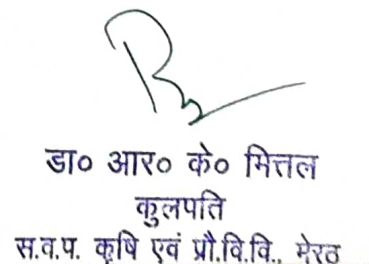 डा० आर० के० मित्तल
कुलपति
स.व.प. कृषि एवं प्रौ.वि.वि., मेरठ